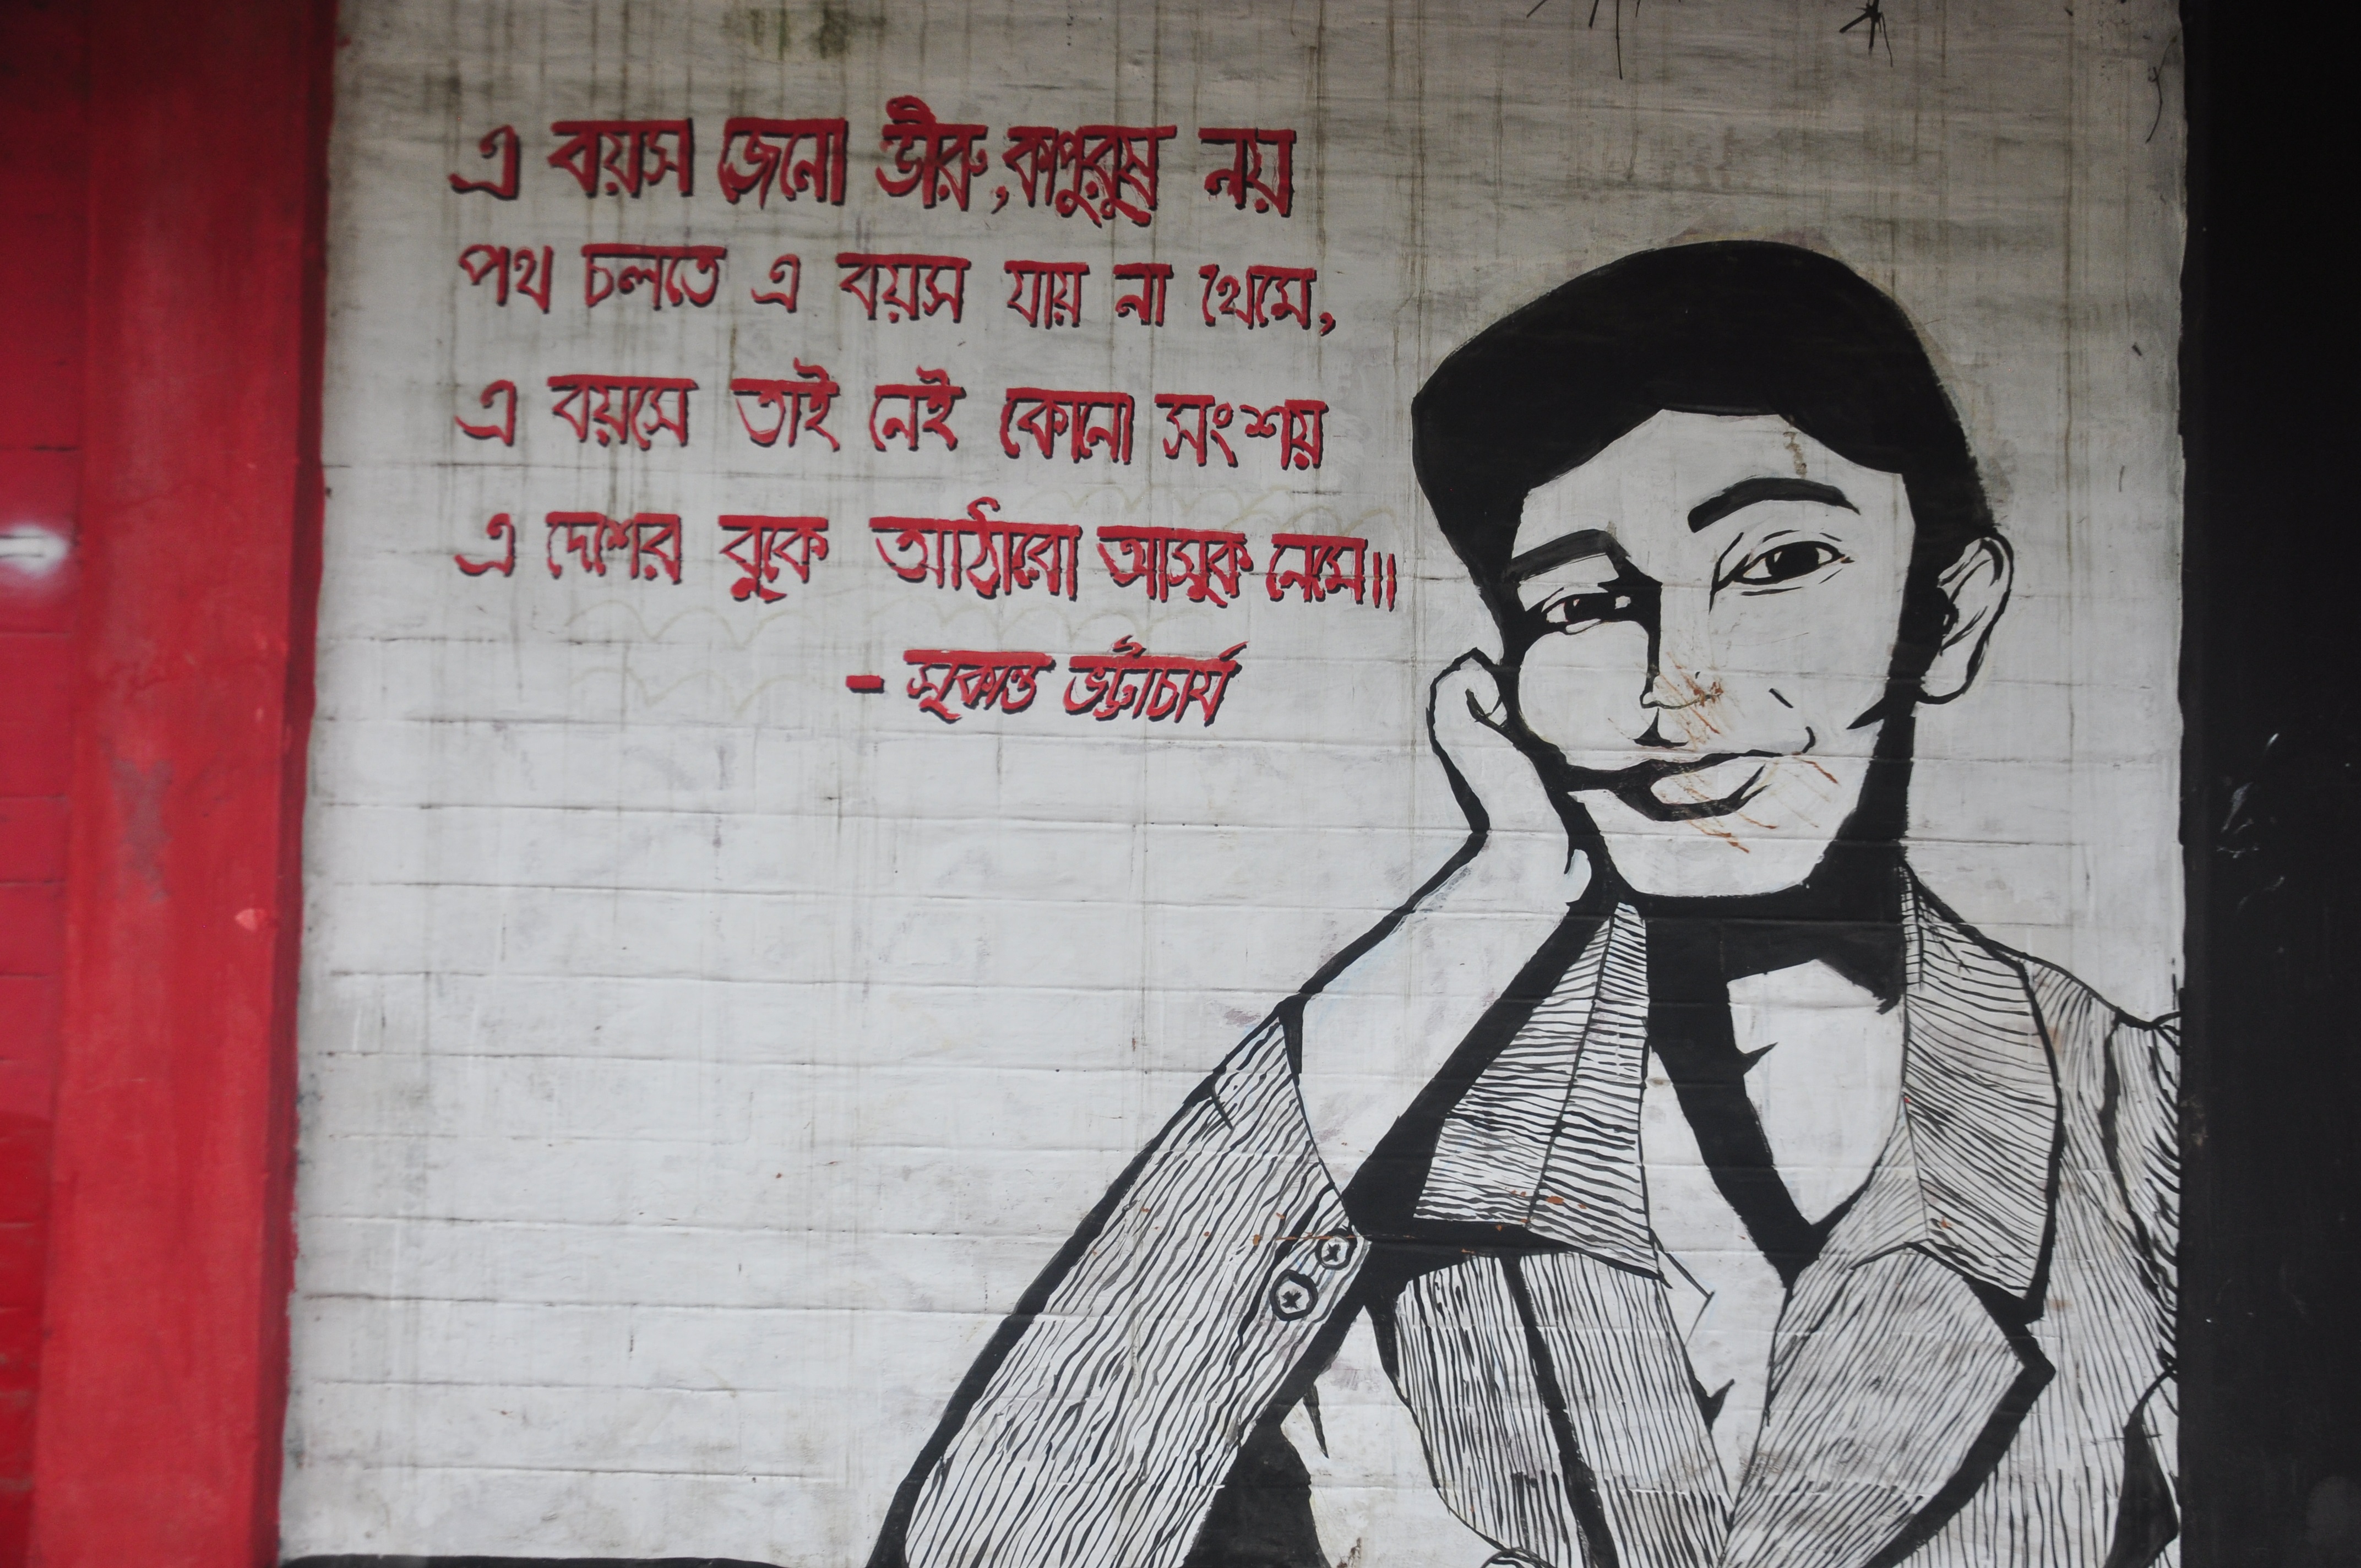 এ বয়স জেনো ভীরু, কাপুরুষ নয়
পথ চলতে এ বয়স যায় না থেমে,
এ বয়সে তাই নেই কোনো সংশয়
এ দেশের বুকে আঠারো আসুক নেমে॥
- সুকান্ত ভট্টাচার্য